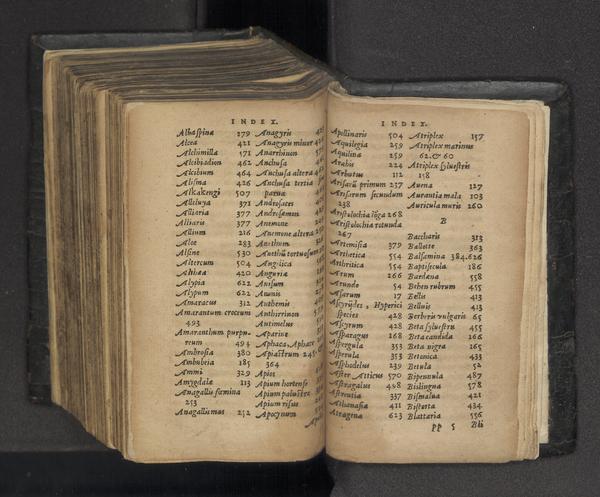 INDEX.
Alba spina 179
Alcea 421
Alchimilla 571
Alcibiadion 462
Alcibium 464
Alisma 426
Alkakengi 507
Alleluya 371
Alliaria 377
Alliaris 377
Allium 216
Aloe 283
Alsine 530
Altercum 504
Althæa 420
Alypia 622
Alypum 622
Amaracus 312
Amarantum croceum
493
Amaranthum purpu-
reum 494
Ambrosia 380
Ambubeia 185
Ammi 329
Amygdala 113
Anagallis fœmina
253
Anagallis mas 252
Anagyris
Anagyris minor
Anarrhinon
Anchusa
Anchusa altera
Anchusa tertia
parua
Androsaces
Androsæmon
Anemone
Anemone altera
Anethum
Anethũ tortuosum
Angelica
Anguria
Anisum
Anonis
Anthemis
Anthirrinon
Antimelus
Aparine
Aphaca, Aphace
Apiastrum 245.
364
Apios
Apium hortense
Apium palustre
Apium risus
Apocynum
INDEX.
Apollinaris 504
Aquilegia 259
Aquilina 259
Arabis 224
Arbutus 112
Arisarũ primum 237
Arisarum secundum
238
Aristolochia lõga 268
Aristolochia rotunda
267
Artemisia 379
Arthetica 554
Arthritica 554
Arum 266
Arundo 54
Asarum 17
Ascyrũdes, Hyperici
species 428
Ascyrum 428
Asparagus 168
Aspergula 353
Asperula 353
Asphodelus 239
Aster Atticus 570
Astragalus 498
Astrentia 337
Athanasia 411
Atragena 623
Atriplex 157
Atriplex marinus
62.& 60
Atriplex syluestris
158
Auena 127
Aurantia mala 103
Auricula muris 260
B
Baccharis 313
Ballote 363
Balsamina 384.626
Baptisecula 186
Bardana 558
Behen rubrum 455
Bellis 413
Belluis 413
Berberis vulgaris 65
Beta syluestris 455
Beta candida 166
Beta nigra 165
Betonica 433
Betula 52
Bipennula 487
Bislingua 578
Bismalua 421
Bistorta 434
Blattaria 556
pp 5 Bli